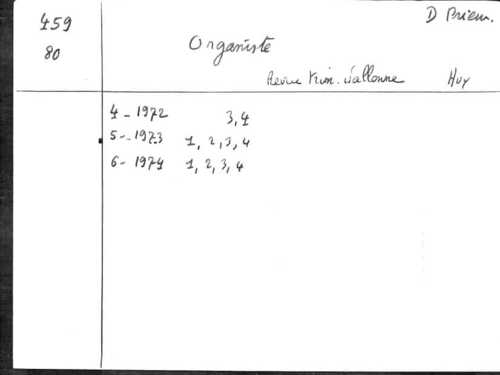 459
80
D Prieur.
Organiste
Revue Wallonne Huy
4 - 1972 3, 4
5 - 1973 1, 2, 3, 4
6 - 1974 1, 2, 3, 4